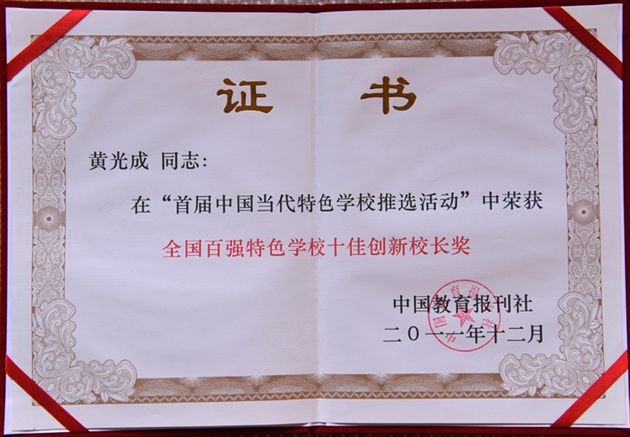 证 书
黄光成 同志：
在“首届中国当代特色学校推选活动”中荣获
全国百强特色学校十佳创新校长奖
中国教育报刊社
二〇一一年十二月
中国教育报刊社